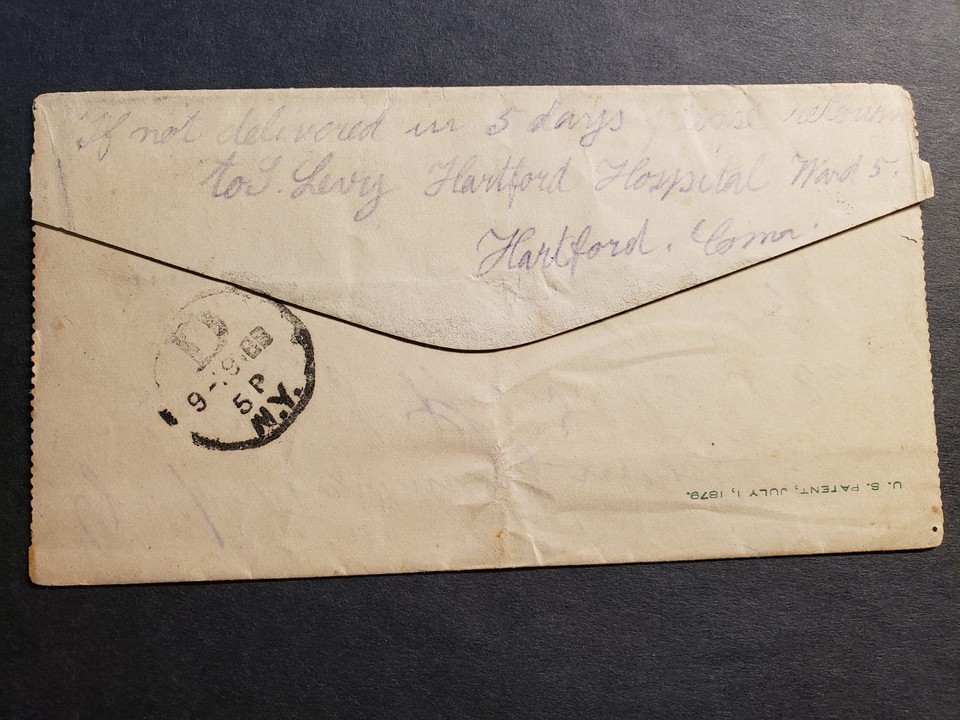 If not delivered in 5 days please return
to S. Levy Hartford Hospital Ward 5.
Hartford. Conn.
D
5 P
N.Y.
U. S. PATENT, JULY 1, 1879.